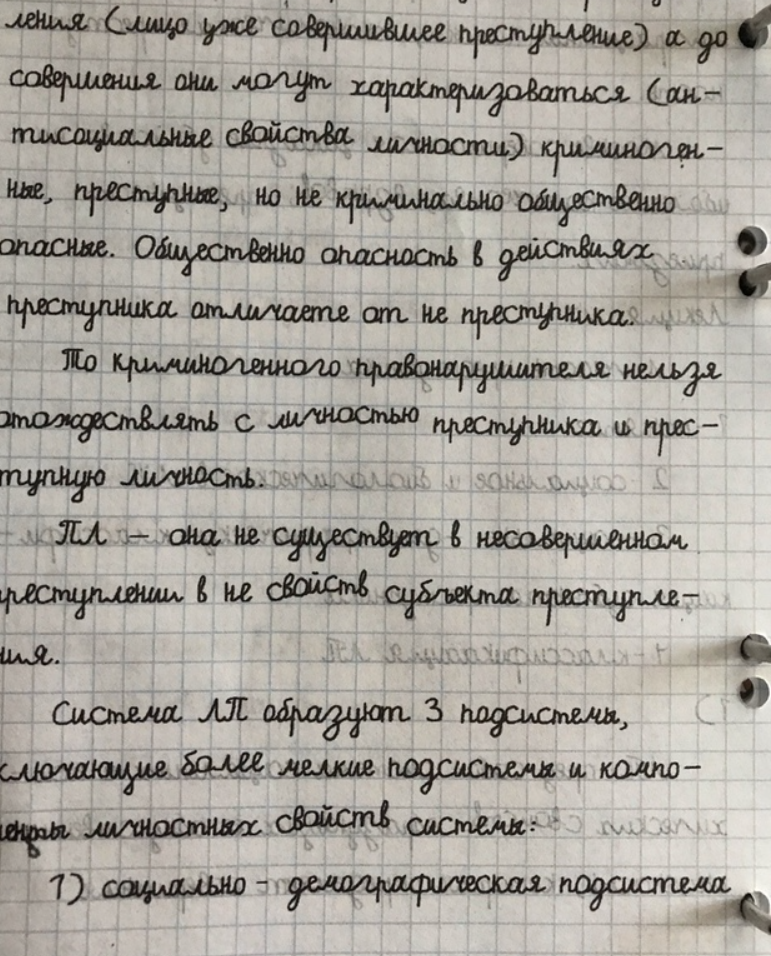 ления (лицо уже совершившее преступление) а до
совершения они могут характеризоваться (ан-
тисоциальные свойства личности) криминоген-
ные, преступные, но не криминально общественно
опасные. Общественно опасность в действиях
преступника отличаете от не преступника.
То криминогенного правонарушителя нельзя
отождествлять с личностью преступника и прес-
тупную личность.
ПЛ — она не существует в несовершенном
преступлении в не свойств субъекта преступле-
ния.
Система ЛП образуют 3 подсистемы,
ключающие более мелкие подсистемы и компо-
ненты личностных свойств системы:
1) социально - демографическая подсистема